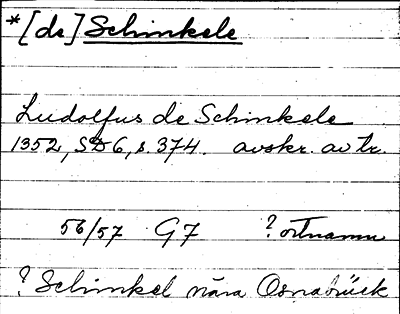 *[de] Schinkele
Ludolfus de Schinkele
1352, SD 6, s. 374. avskr. av tr.
56/57 G7 ? ortnamn
? Schinkel nära Osnabrück